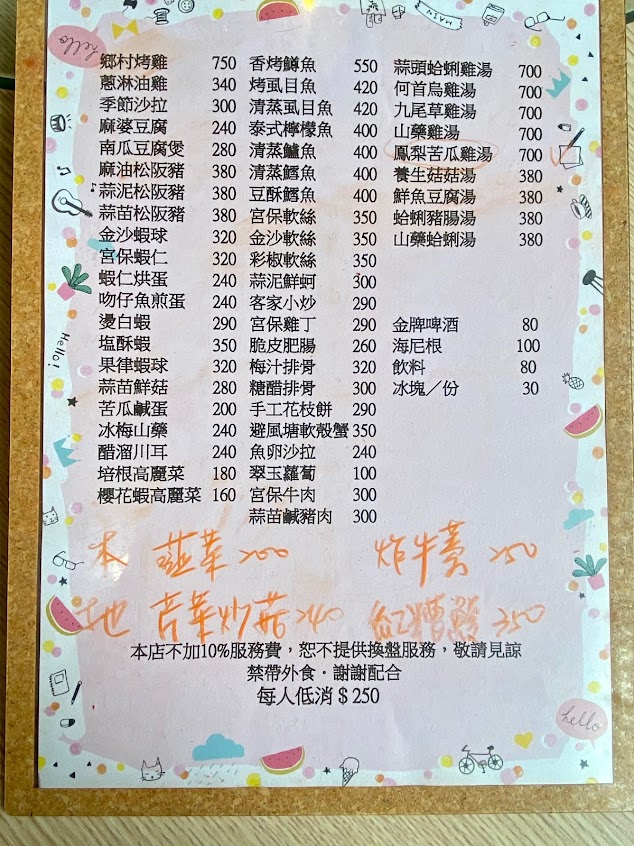 hello
鄉村烤雞 750
蔥淋油雞 340
季節沙拉 300
麻婆豆腐 240
南瓜豆腐煲 280
麻油松阪豬 380
蒜泥松阪豬 380
蒜苗松阪豬 380
金沙蝦球 320
宮保蝦仁 320
蝦仁烘蛋 240
吻仔魚煎蛋 240
燙白蝦 290
塩酥蝦 350
果律蝦球 320
蒜苗鮮菇 280
苦瓜鹹蛋 200
冰梅山藥 240
醋溜川耳 240
培根高麗菜 180
櫻花蝦高麗菜 160
香烤鱒魚 550
烤虱目魚 420
清蒸虱目魚 420
泰式檸檬魚 400
清蒸鱸魚 400
清蒸鱈魚 400
豆酥鱈魚 400
宮保軟絲 350
金沙軟絲 350
彩椒軟絲 350
蒜泥鮮蚵 300
客家小炒 290
宮保雞丁 290
脆皮肥腸 260
梅汁排骨 320
糖醋排骨 300
手工花枝餅 290
避風塘軟殼蟹 350
魚卵沙拉 240
翠玉蘿蔔 100
宮保牛肉 300
蒜苗鹹豬肉 300
蒜頭蛤蜊雞湯 700
何首烏雞湯 700
九尾草雞湯 700
山藥雞湯 700
鳳梨苦瓜雞湯 700
養生菇菇湯 380
鮮魚豆腐湯 380
蛤蜊豬腸湯 380
山藥蛤蜊湯 380
金牌啤酒 80
海尼根 100
飲料 80
冰塊／份 30
Hello!
本地 韮菜 200
芹菜炒菇 240
炸牛蒡 250
紅糟鰻 350
本店不加10%服務費，恕不提供換盤服務，敬請見諒
禁帶外食．謝謝配合
每人低消＄250
hello